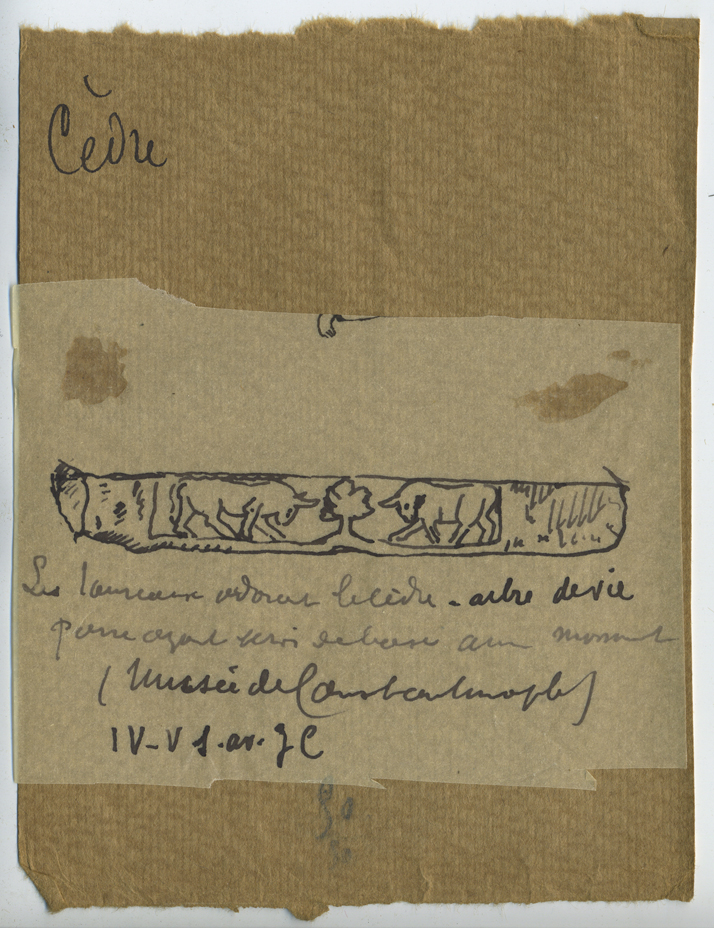 Cèdre
Les taureaux adorant le cèdre - arbre de vie
pierre ayant servi de base à un monument
(Musée de Constantinople)
IV-V s. av. J C